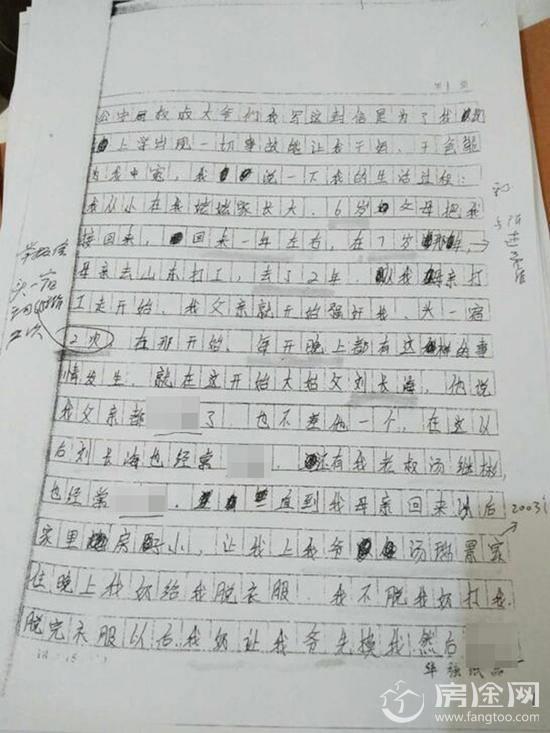 第1页
公安局权威大爷们我写这封信是为了我
上学出现一切事故能让我干妈、干爸能
为我申冤，我说一下我的生活过程：
我从小在我姥姥家长大。6岁父母把我
接回来，回来一年左右，在7岁那时，
母亲去山东打工，去了2年。从我母亲打
工走开始，我父亲就开始强奸我，头一宿
2次，在那开始，每天晚上都有这样的事
情发生，就在这开始大姑父刘长海，他说
我父亲都 了，也不差他一个，在这以
后刘长海也经常 ，还有我老叔汤继彬，
也经常 ，一直到我母亲回来以后
2003
家里房子小，让我上我爷汤瑞景家
住晚上我奶给我脱衣服，我不脱我奶打我，
脱完衣服以后我奶让我爷先 我然后
头一宿
2次
房途网
www.fangtoo.com